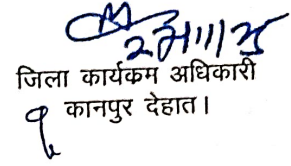 जिला कार्यकम अधिकारी
कानपुर देहात।